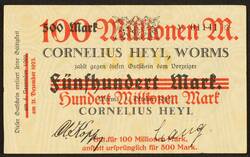 500 Mark
100 Millionen M.
CORNELIUS HEYL, WORMS
zahlt gegen diesen Gutschein dem Vorzeiger
Fünfhundert Mark.
Hundert Millionen Mark
CORNELIUS HEYL
für 100 Millionen Mark,
anstatt ursprünglich für 500 Mark.
Dieser Gutschein verliert seine Gültigkeit
am 31. Dezember 1923.